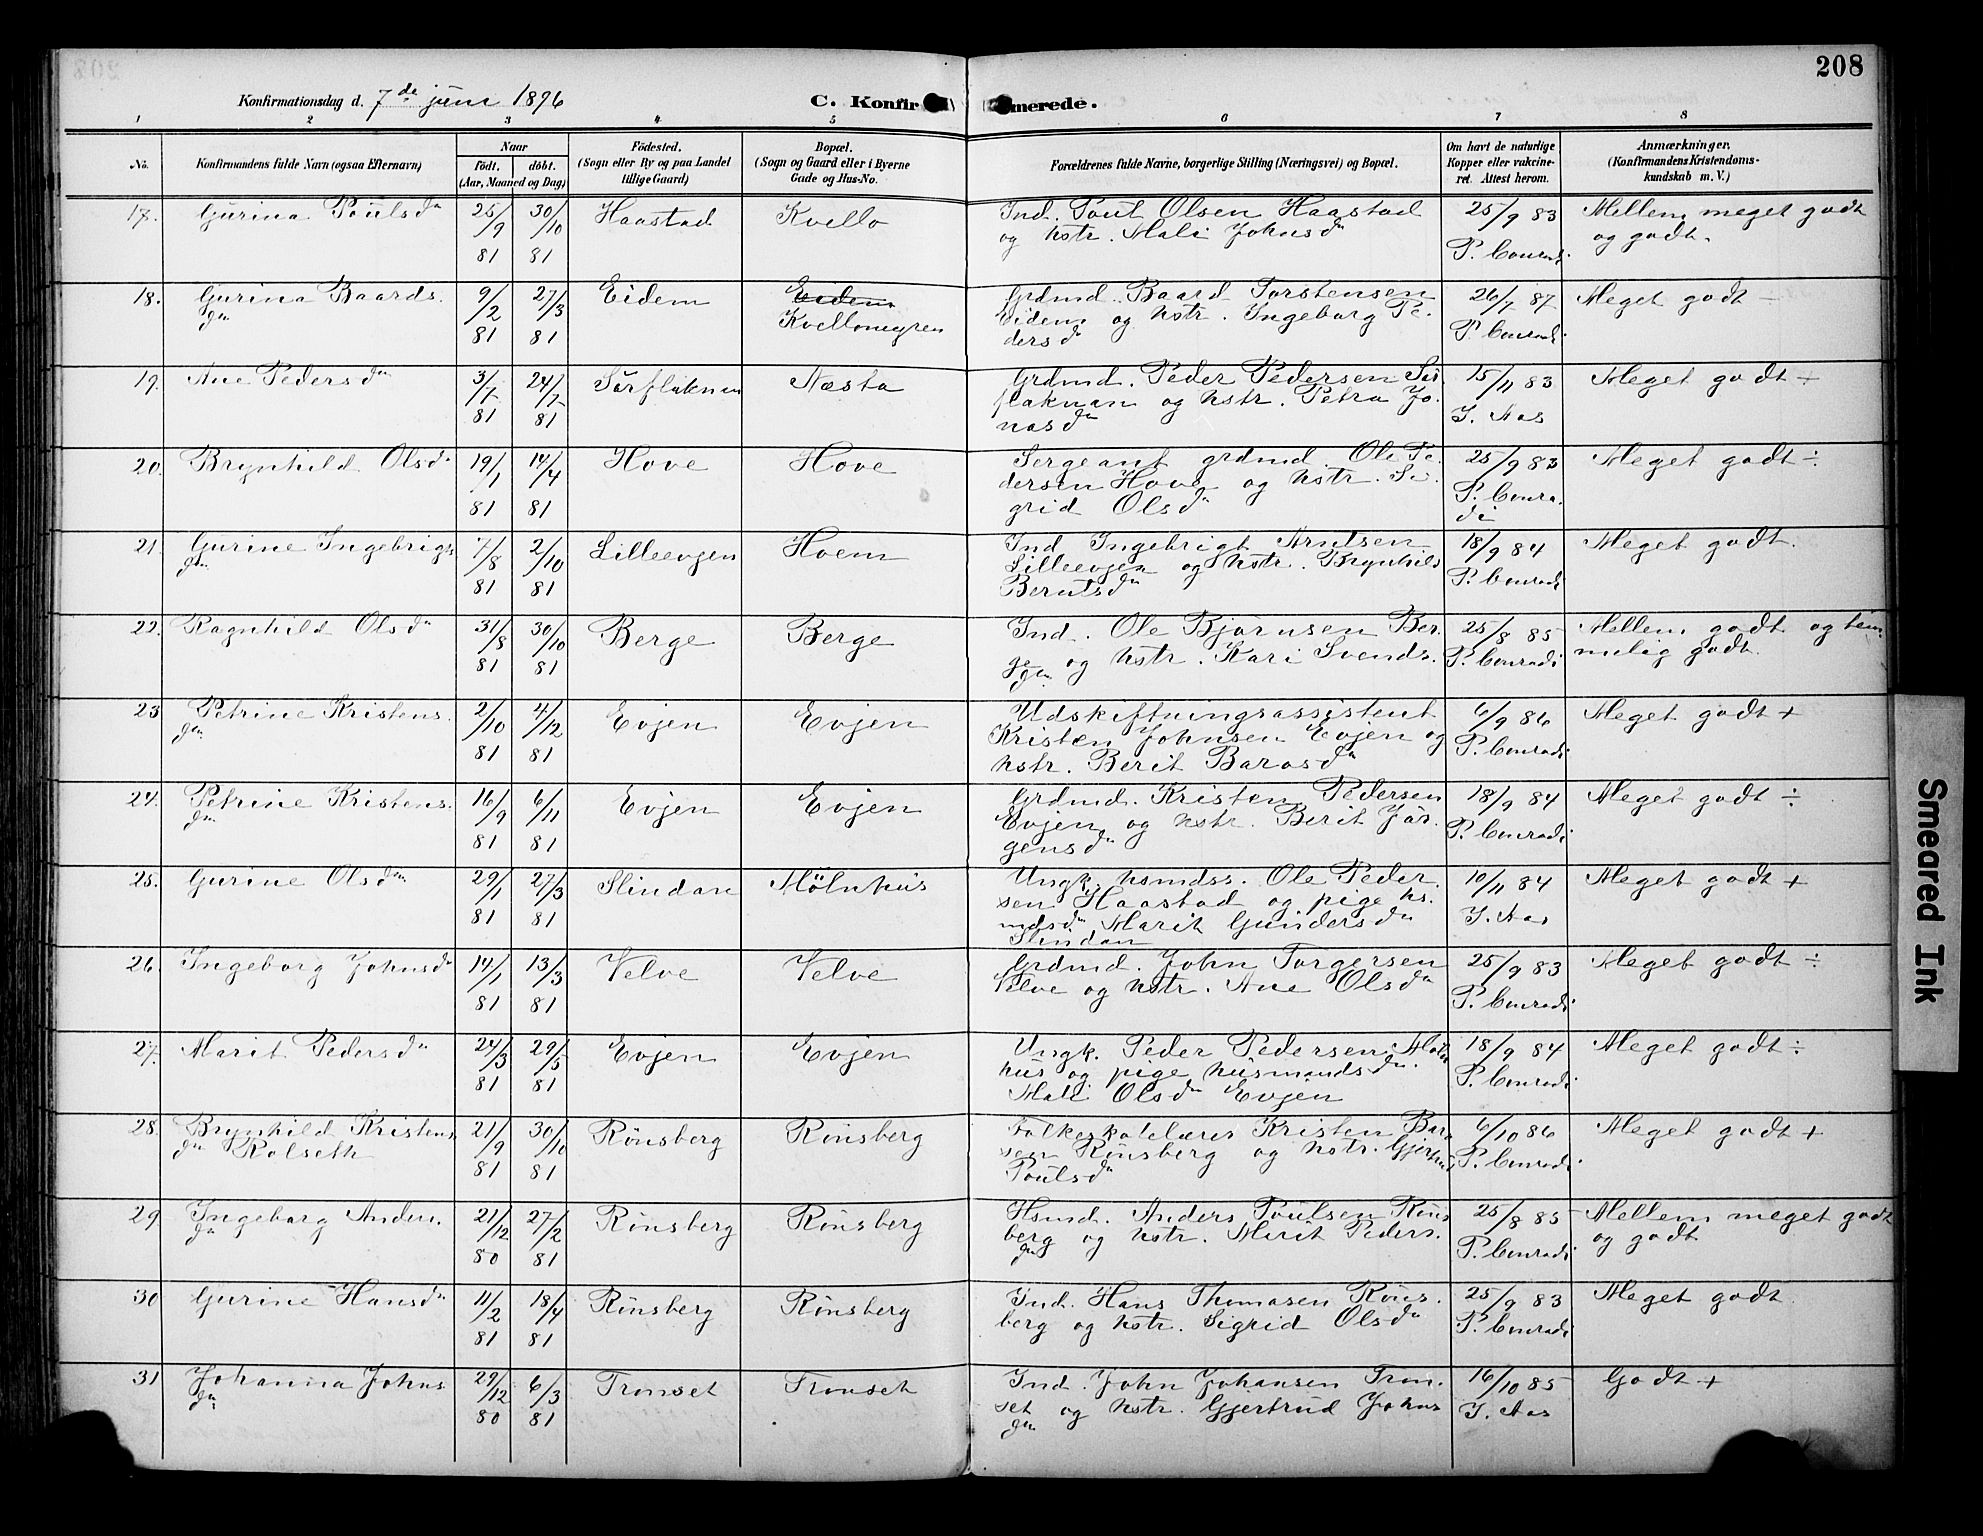 208
Konfirmationsdag d. 7de juni 1896
C. Konfir merede.
1 2 3 4 5 6 7 8
No.
Konfirmandens fulde Navn (ogsaa Efternavn)
Naar
födt. döbt.
(Aar, Maaned og Dag)
Födested.
(Sogn eller By og paa Landet
tillige Gaard)
Bopæl.
(Sogn og Gaard eller i Byerne
Gade og Hus-No.
Forældrenes fulde Navne, borgerlige Stilling (Næringsvei) og Bopæl.
Om havt de naturlige
Kopper eller vakcine-
ret. Attest herom.
Anmærkninger.
(Konfirmandens Kristendoms-
kundskab m. V.)
17. Gurina Poulsdn 25/9 81 30/10 81 Haastad Kvello
Ind. Poul Olsen Haastad
og hstr. Mali Johnsdn
25/9 83
P. Conradi
Mellem meget godt
og godt.
18. Gurina Baards.
dn
9/2 81 27/3 81 Eidem
Eidem
Kvellomyren
Grdmd. Baard Torstensen
Eidem og hstr. Ingeborg Pe-
dersdn
26/7 87
P. Conradi
Meget godt -
19. Ane Pedersdn 3/7 81 24/7 81 Sörflaknan Næsta
Grdmd. Peder Pedersen Sör
flaknan og hstr. Petra Jo-
nasdn
15/11 83
J. Aas
Meget godt +
20. Brynhild Olsdn 19/1 81 14/4 81 Hove Hove
Sergeant grdmd. Ole Pe-
dersen Hove og hstr. Si-
grid Olsdn
25/9 83
P. Conra-
di
Meget godt ÷
21. Gurine Ingebrigts
dn.
7/8 81 2/10 81 Lilleevjen Hoem
Ind Ingebrigt Arntsen
Lilleevjen og hstr. Brynhild
Berntsdn
18/9 84
P. Conradi
Meget godt.
22. Ragnhild Olsdn 31/8 81 30/10 81 Berge Berge
Ind. Ole Bjørnsen Ber-
ge og hstr. Kari Svends.
dn.
25/8 85
P. Conradi
Mellem godt og tem
melig godt.
23 Petrine Kristens.
dn
2/10 81 4/12 81 Evjen Evjen
Udskiftningsassistent
Kristen Johnsen Evjen og
hstr. Berit Barosdn
6/9 86
P. Conradi
Meget godt +
24. Petrine Kristens.
dn
16/9 81 6/11 81 Evjen Evjen
Grdmd. Kristen Pedersen
Evjen og hstr. Berit Jör-
gensdn
18/9 84
P. Conradi
Meget godt ÷
25. Gurine Olsdn 29/1 81 27/3 81 Slindan Mölnhus
Ungk. hsmdss. Ole Peder-
sen Haastad og pige hs.
mdsdn Marit Gundersdn
Slindan
10/11 84
J. Aas
Meget godt +
26. Ingeborg Johnsdn 14/1 81 13/3 81 Velve Velve
Grdmd. John Torgersen
Velve og hstr. Ane Olsdn
25/9 83
P. Conradi
Meget godt ÷
27. Marit Pedersdn 24/3 81 29/5 81 Evjen Evjen
Ungk. Peder Pedersen Moln
hus og pige husmandsdn.
Mali Olsdn Evjen
18/9 84
P. Conradi
Meget godt ÷
28. Brynhild Kristens
dn Rolseth
21/9 81 30/10 81 Rönsberg Rönsberg
Folkeskolelærer Kristen Baro
sen Rönsberg og hstr. Gjertrud
Poulsdn
6/10 86
P. Conradi
Meget godt +
29 Ingeborg Anders.
dn
21/12 80 27/2 81 Rönsberg Rönsberg
Hsmd. Anders Poulsen Röns
berg og hstr. Marit Peders.
dn
25/8 85
P. Conradi
Mellem meget godt
og godt
30 Gurine Hansdn 11/2 81 18/4 81 Rönsberg Rönsberg
Ind. Hans Thomasen Röns-
berg og hstr. Sigrid Olsdn
25/9 83
P. Conradi
Meget godt
31 Johanna Johns
dn
29/12 80 6/3 81 Tronset Tronset
Ind. John Johansen Tron-
set og hstr. Gjertrud Johns
dn
16/10 85
J. Aas
Godt +
Smeared Ink